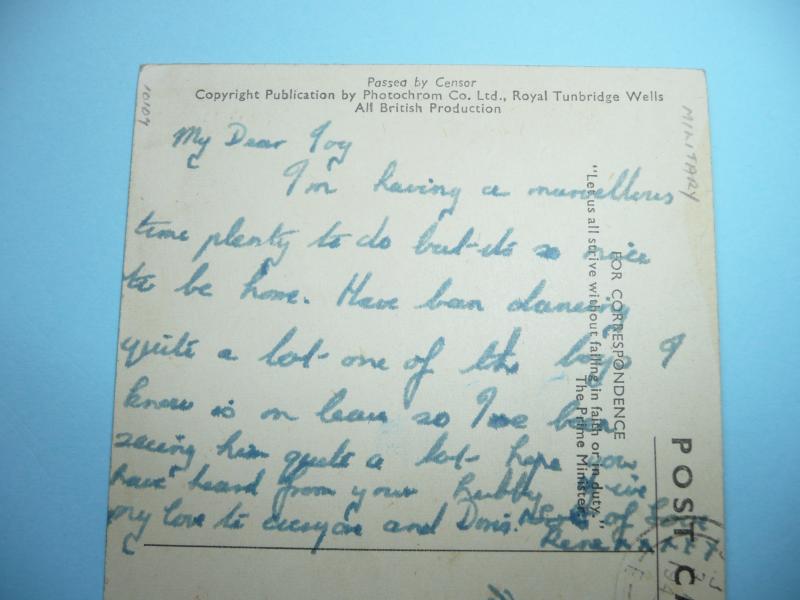 Passed by Censor
Copyright Publication by Photochrom Co. Ltd., Royal Tunbridge Wells
All British Production
10109
MILITARY
My Dear Joy
I'm having a marvellous
time plenty to do but its so nice
to be home. Have ban dancing
quite a lot one of the boys I
know is on leave so I've ben
seeing him quite a lot hope you
have heard from your hubby give
my love to everyone and Doris. of love
Rene xxxxx
"Let us all strive without failing in faith or in duty."
The Prime Minister
FOR CORRESPONDENCE
POST C